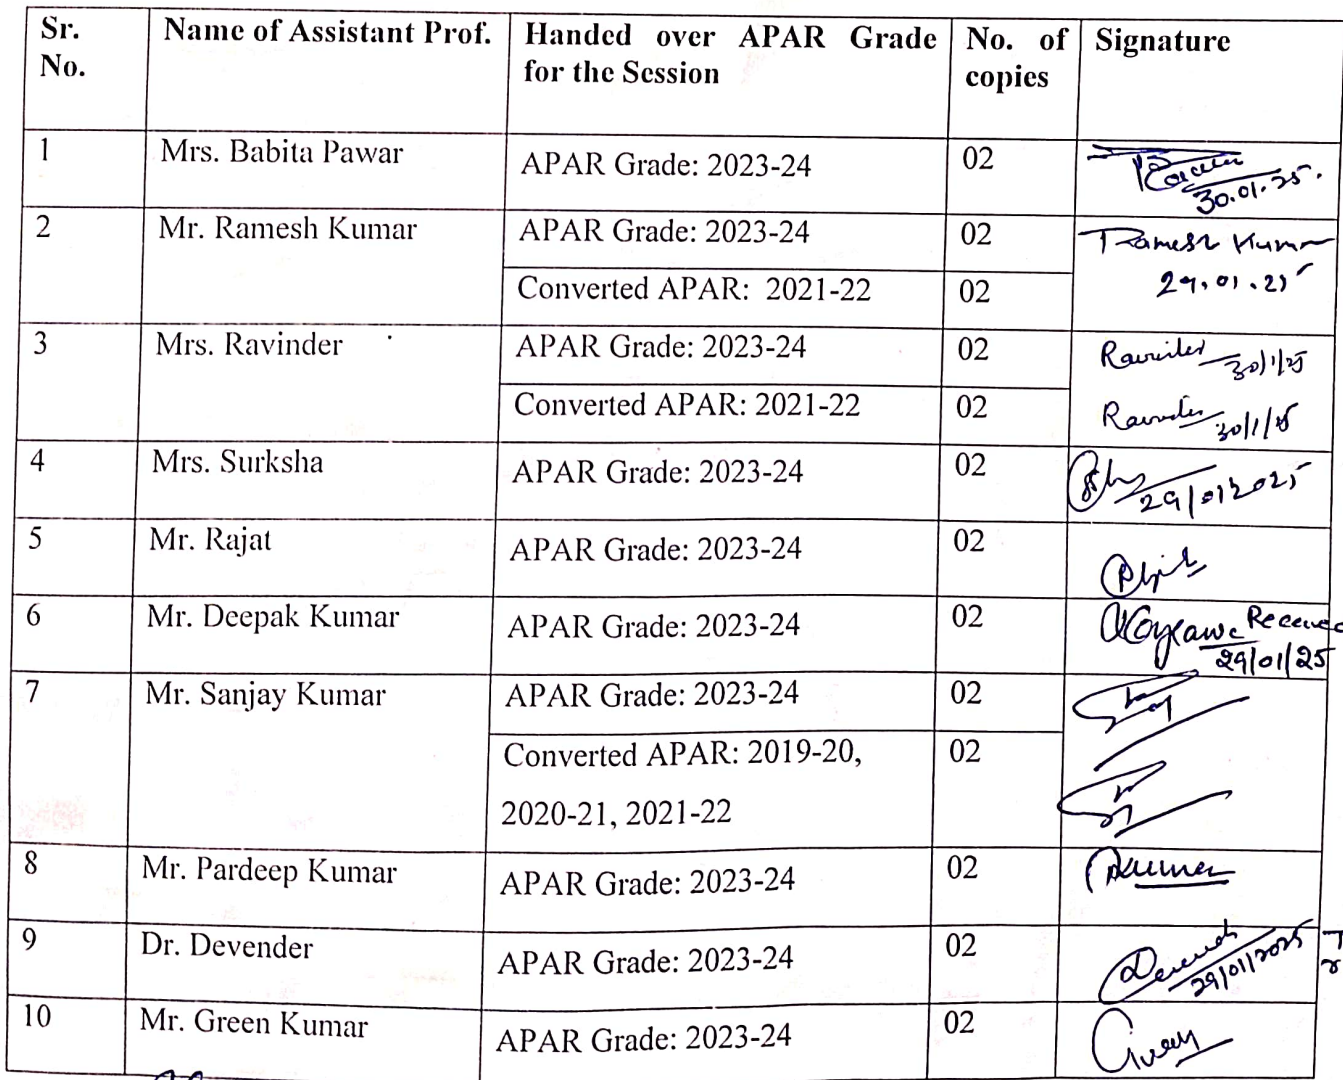 Sr. No. Name of Assistant Prof. Handed over APAR Grade for the Session No. of copies Signature
1 Mrs. Babita Pawar APAR Grade: 2023-24 02
30.01.25.
2 Mr. Ramesh Kumar APAR Grade: 2023-24 02 Ramesh Kumar
Converted APAR: 2021-22 02 29.01.25
3 Mrs. Ravinder APAR Grade: 2023-24 02 Ravinder 30/1/25
Converted APAR: 2021-22 02 Ravinder 30/1/25
4 Mrs. Surksha APAR Grade: 2023-24 02 29/01/2025
5 Mr. Rajat APAR Grade: 2023-24 02
6 Mr. Deepak Kumar APAR Grade: 2023-24 02 Received
29/01/25
7 Mr. Sanjay Kumar APAR Grade: 2023-24 02
Converted APAR: 2019-20, 02
2020-21, 2021-22
8 Mr. Pardeep Kumar APAR Grade: 2023-24 02
9 Dr. Devender APAR Grade: 2023-24 02 29/01/2025
10 Mr. Green Kumar APAR Grade: 2023-24 02